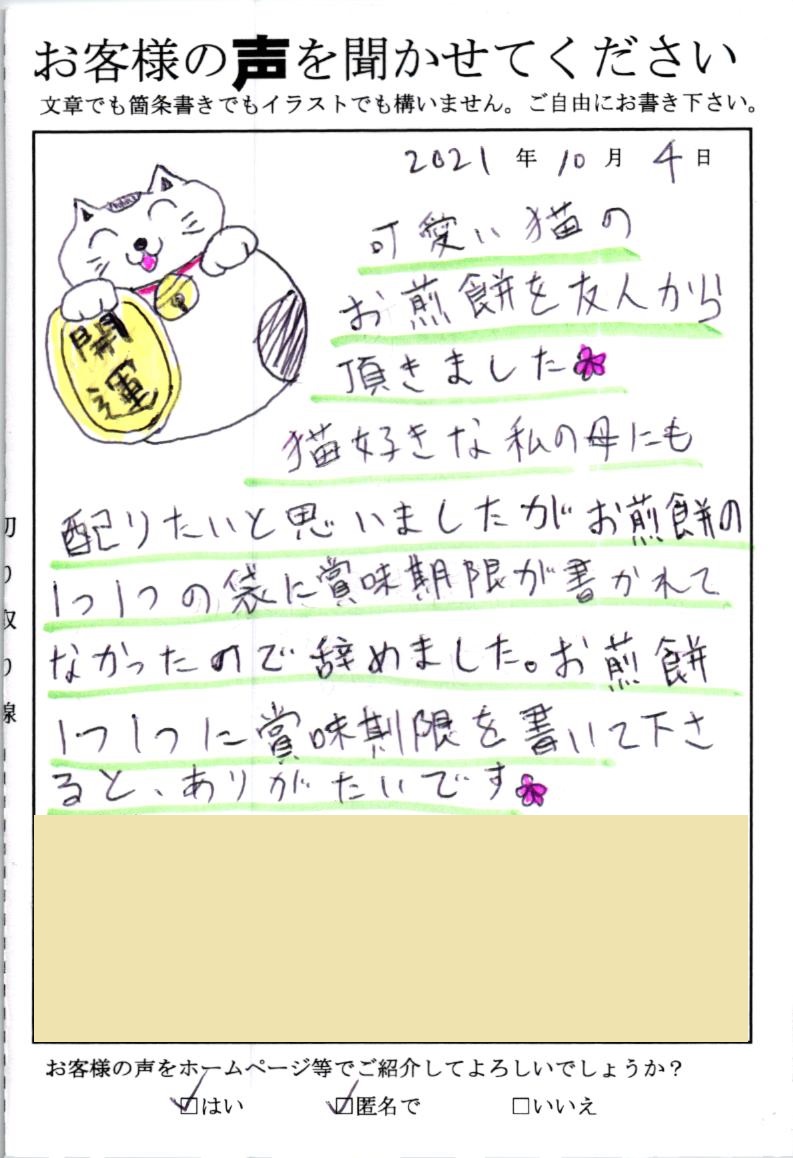 お客様の声を聞かせてください
文章でも箇条書きでもイラストでも構いません。ご自由にお書き下さい。
2021年10月4日
開運
可愛い猫の
お煎餅を友人から
頂きました
猫好きな私の母にも
配りたいと思いましたがお煎餅の
1つ1つの袋に賞味期限が書かれて
なかったので辞めました。お煎餅
1つ1つに賞味期限を書いて下さ
ると、ありがたいです
切り取り線
お客様の声をホームページ等でご紹介してよろしいでしょうか?
☑はい ☑匿名で □いいえ